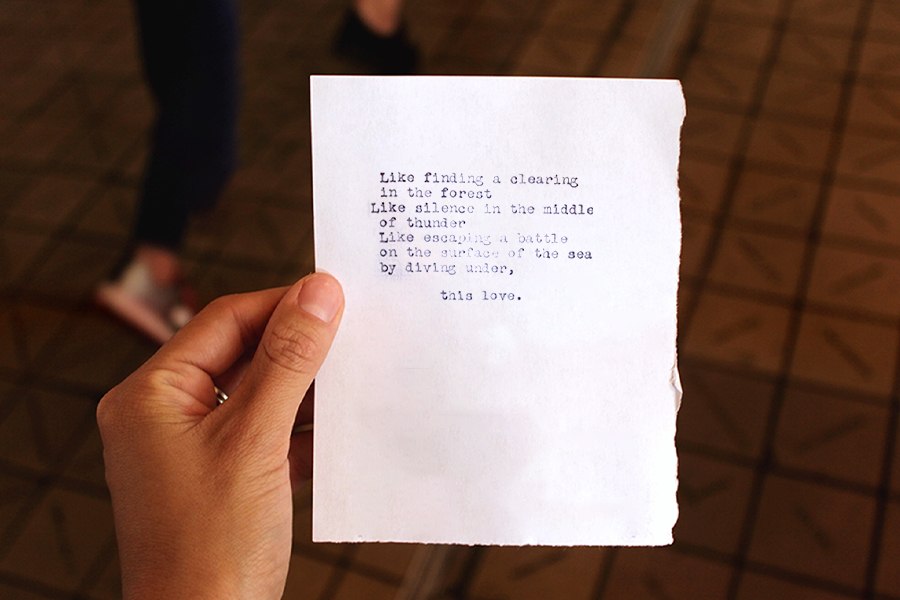 Like finding a clearing
in the forest
Like silence in the middle
of thunder
Like escaping a battle
on the surface of the sea
by diving under,
this love.